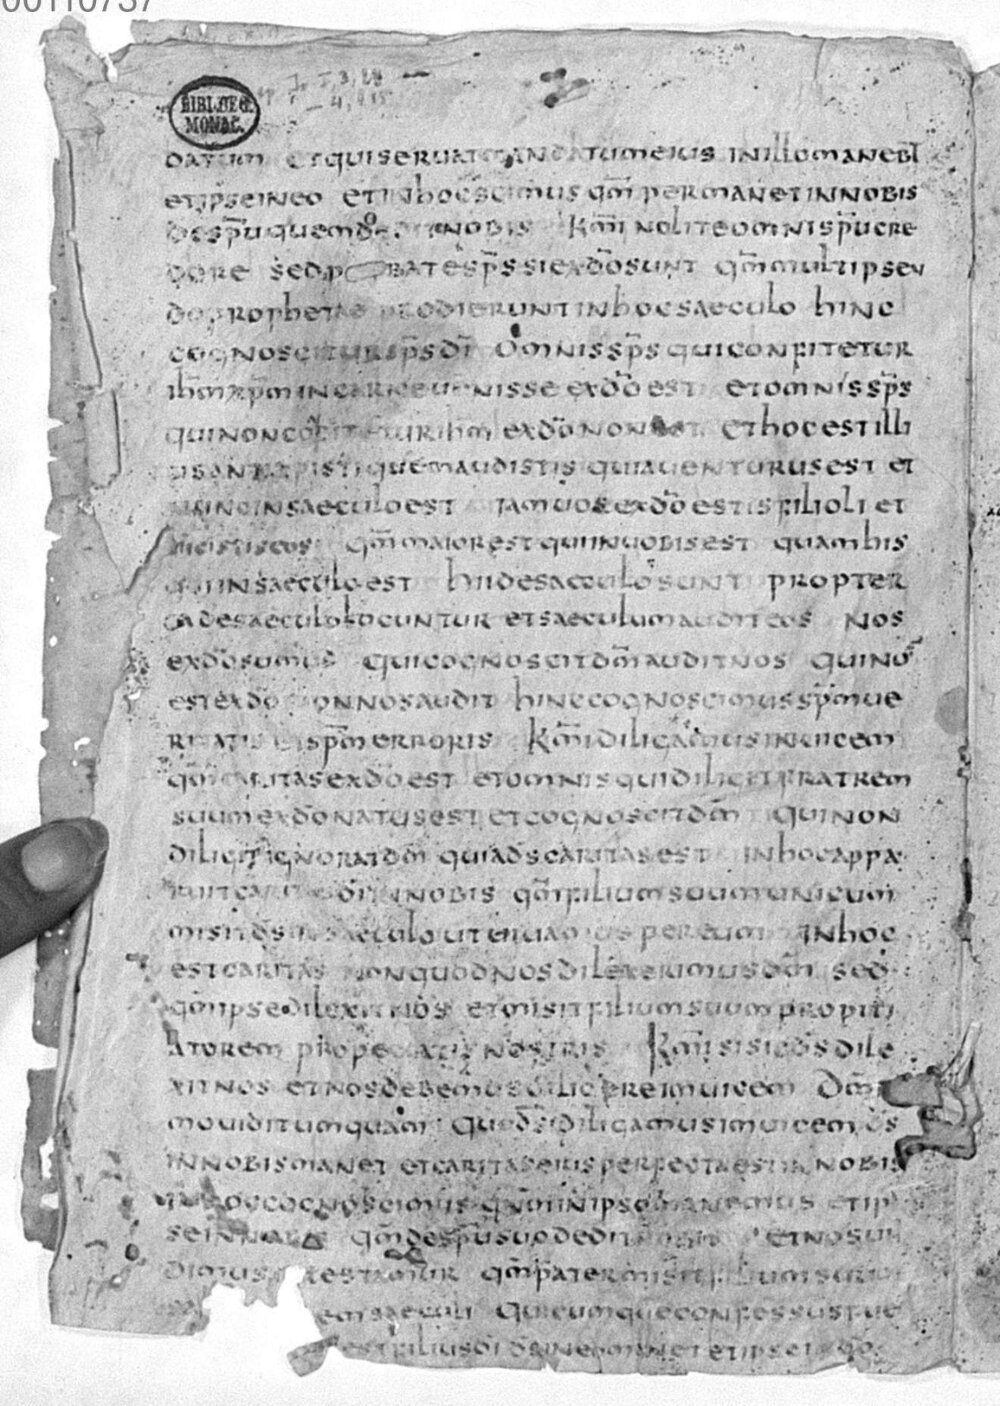 00110737
BIBLIOTHEC.
MONAC.
Jo I, 3, 24
— 4, 15
DATUM ETQUISERUAT MANDATUMEIUS INILLOMANEBIT
ETIPSEINEO ETINHOCSCIMUS QM̅ PERMANETINNOBIS
DESPU̅QUEMDEDITNOBIS KM̅I NOLITEOMNISPU̅CRE
DERE SEDPROBATESPS̅SIEXDO̅SUNT QM̅MULTIPSEU
DOPROPHETAE PRODIERUNTINHOCSAECULO HINC
COGNOSCITURSPS̅DI̅ OMNISSPS̅QUICONFITETUR
IHM̅XPM̅INCARNEUENISSE EXDO̅EST ETOMNISSPS̅
QUINONCONFITETURIHM̅ EXDO̅NONEST ETHOCESTILLI
USANTEXPISTI QUEMAUDISTIS QUIAUENTURUSEST ET
NUNCINSAECULOEST IAMUOSEXDO̅ESTISFILIOLI ET
UICISTISEOS QM̅MAIORESTQUIINUOBISEST QUAMHIS
QUIINSAECULOEST HIIDESAECULOSUNT PROPTER
EADESAECULOLOCUNTUR ETSAECULUMAUDITEOS NOS
EXDO̅SUMUS QUICOGNOSCITDM̅AUDITNOS QUINO̅
ESTEXDO̅ NONNOSAUDIT HINCCOGNOSCIMUSSPM̅UE
RITATIS ETSPM̅ERRORIS KM̅IDILIGAMUSINUICEM
QM̅CARITASEXDO̅EST ETOMNISQUIDILIGITFRATREM
SUUMEXDO̅NATUSEST ETCOGNOSCITDM̅ QUINON
DILIGITIGNORATDM̅ QUIADS̅CARITASEST INHOCAPPA
RUITCARITASDI̅INNOBIS QM̅FILIUMSUUMUNICUM
MISITDS̅INSAECULO UTUIUAMUSPEREUM INHOC
ESTCARITAS NONQUODNOSDILEXERIMUSDM̅ SED
QM̅IPSEDILEXITNOS ETMISITFILIUMSUUMPROPITI
ATOREM PROPECCATISNOSTRIS KM̅ISISICDS̅DILE
XITNOS ETNOSDEBEMUSDILIGEREINUICEM DM̅NE
MOUIDITUMQUAM QUODSIDILIGAMUSINUICEM DS̅
INNOBISMANET ETCARITASEIUSPERFECTAESTINNOBIS
INHOCCOGNOSCIMUS QM̅INIPSOMANEMUS ETIP
SEINNOBIS QM̅DESPU̅SUODEDITNOBIS ETNOSUI
DIMUS TESTAMUR QM̅PATERMISITFILIUMSUUM
EMSAECULI QUICUMQUECONFESSUSFUE
ESTFILIUSDI̅ DS̅INEOMANETETIPSEI DO̅